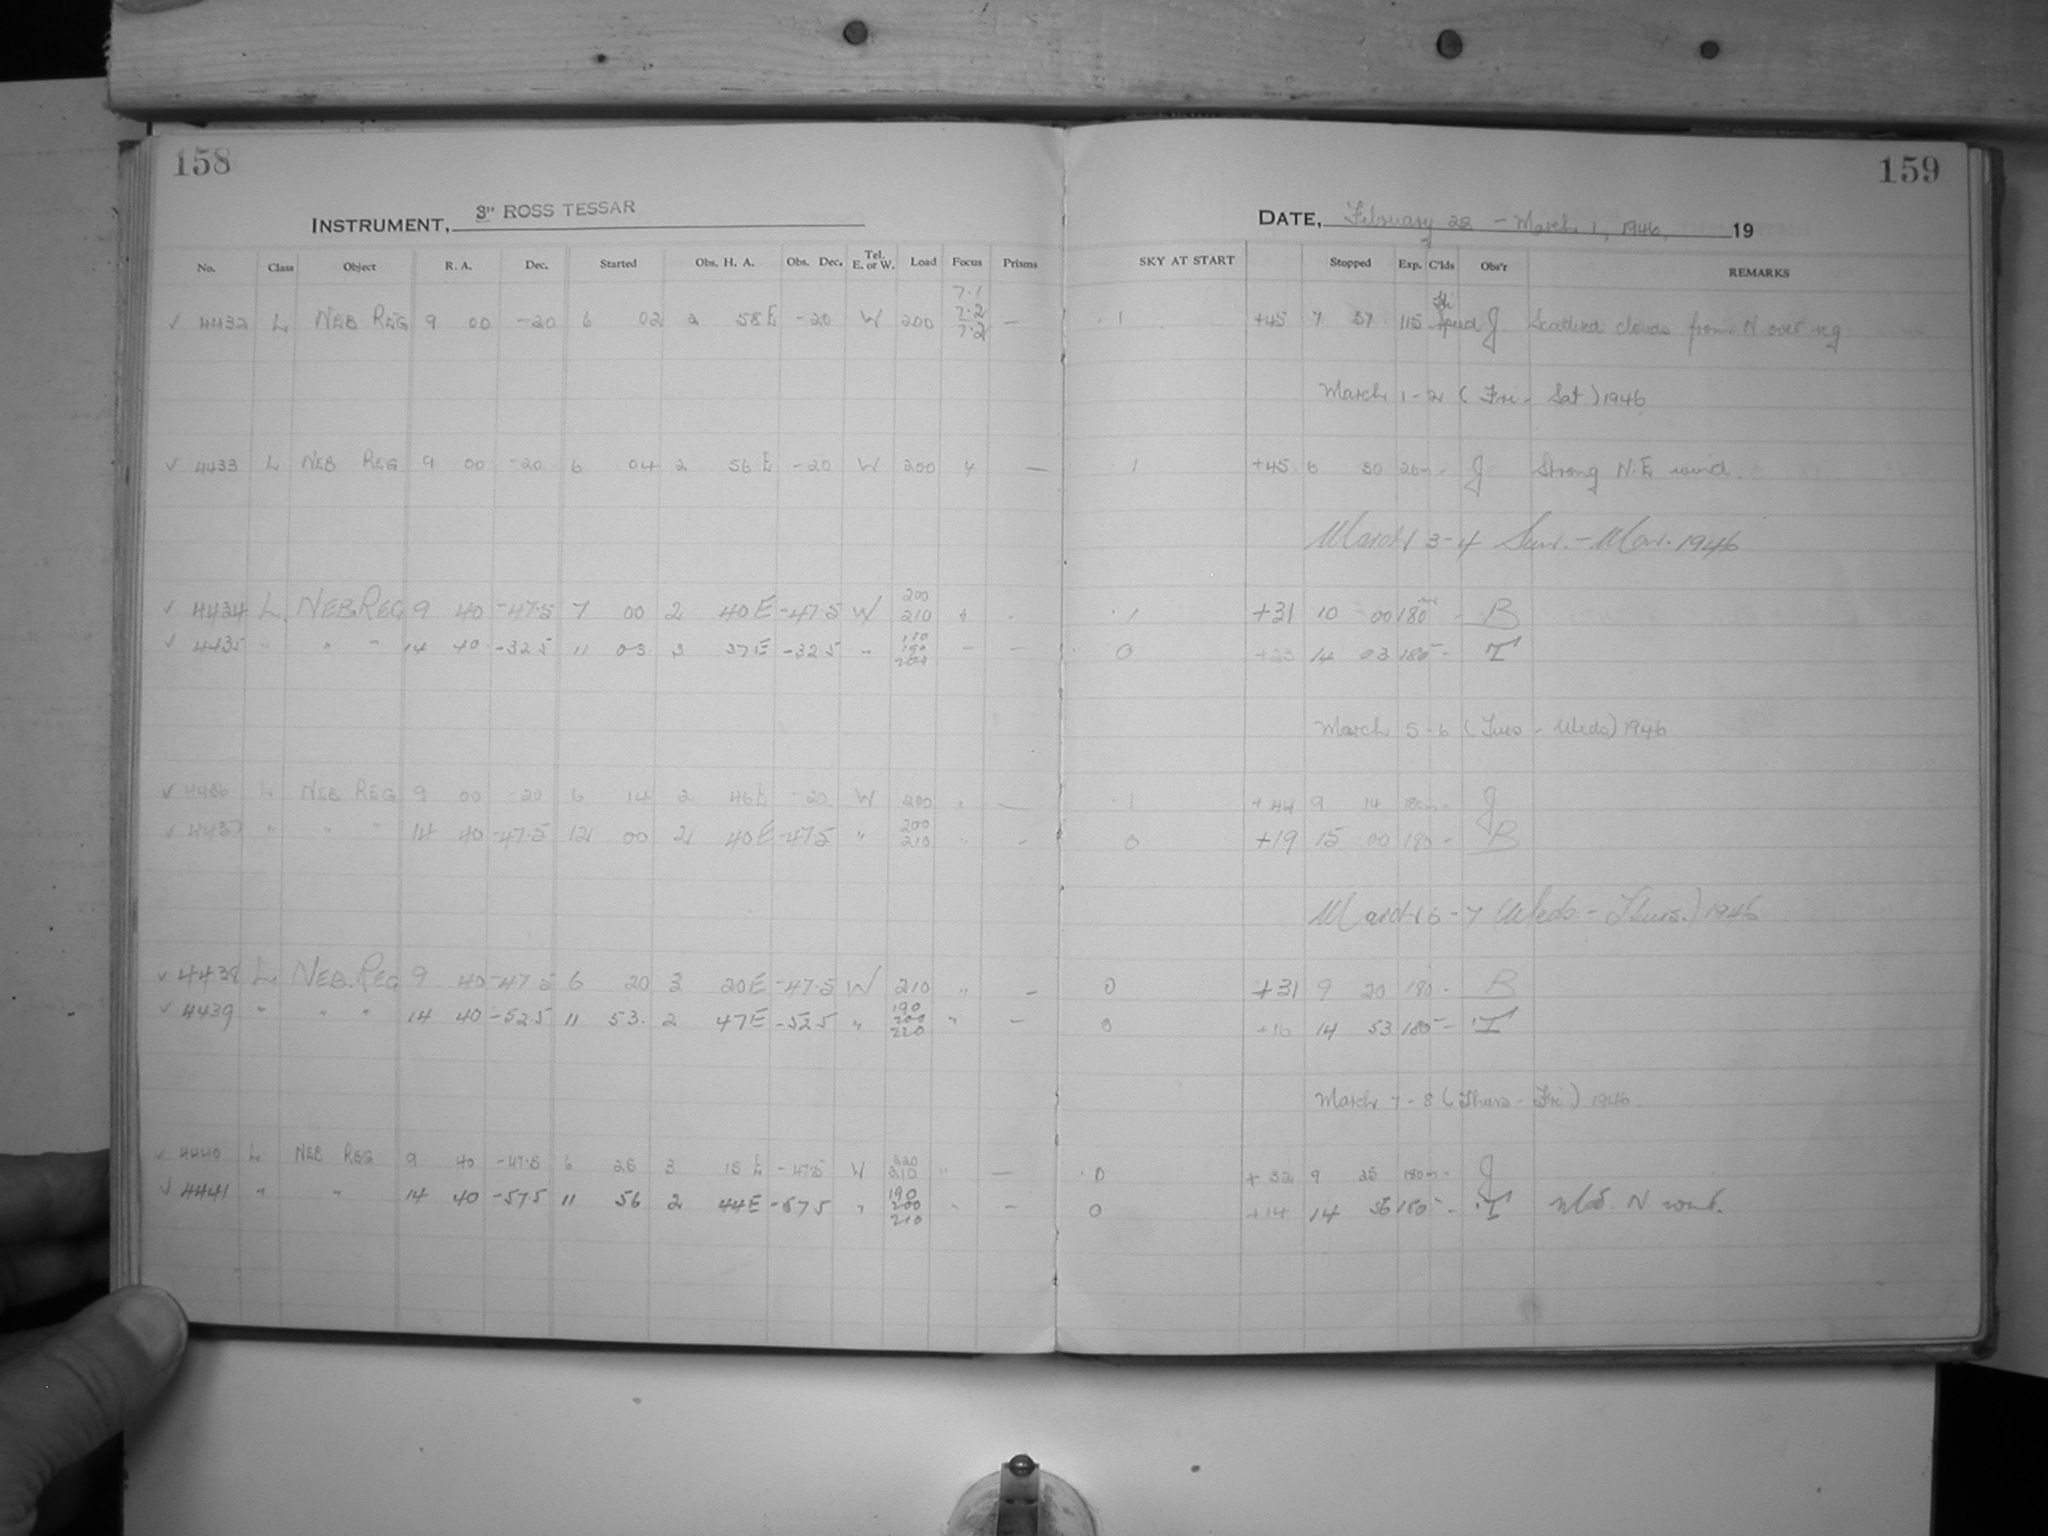 158 159
INSTRUMENT, 3" ROSS TESSAR DATE, February 28 - March 1, 1946, 19
No. Class Object R. A. Dec. Started Obs. H. A. Obs. Dec. Tel. E. or W. Load Focus Prisms SKY AT START Stopped Exp. C'lds Obs'r REMARKS
✓ 4432 L NEB REG 9 00 -20 6 02 2 58 E -20 W 200 7.1 7.2 7.2 — 1 +45 7 57 115 speed J Scattered clouds from N over reg
March 1-2 (Fri - Sat) 1946
✓ 4433 L NEB REG 9 00 -20 6 04 2 56 E -20 W 200 — 1 +45 6 J Strong N.E. wind.
March 3-4 Sun. - Mon. 1946
✓ 4434 L NEB.REG 9 40 -47.5 7 00 2 40 E -47.5 W 200 210 1 +31 10 00 180 - B
✓ 4435 " " " 14 40 -32.5 11 03 3 37 E -32.5 " 190 200 — 0 14 03 180 - T
March 5-6 (Tues - Weds) 1946
✓ 4436 L NEB REG 9 00 -20 6 14 2 46 E -20 W 200 " — 1 +44 9 14 180m - J
✓ 4437 " " " 14 40 -47.5 12 00 2 40 E -47.5 " 200 210 " - 0 +19 15 00 180 - B
March 6-7 (Weds. - Thurs.) 1946
✓ 4438 L NEB.REG 9 40 -47.5 6 20 3 20 E -47.5 W 210 " - 0 +31 9 20 180 - B
✓ 4439 " " " 14 40 -52.5 11 53. 2 47 E -52.5 " 190 200 220 " — 0 +16 14 53 180 - T
March 7-8 (Thurs - Fri) 1946
✓ 4440 L NEB REG 9 40 -47.5 6 25 3 15 E -47.5 W 210 " — 0 +32 9 25 180m - J
✓ 4441 " " 14 40 -57.5 11 56 2 44 E -57.5 " 190 200 210 " — 0 +14 14 56 180 - T Mod. N wind.